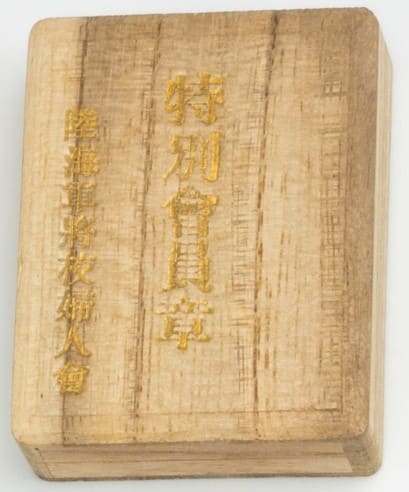 特別會員章
陸海軍將校婦人會